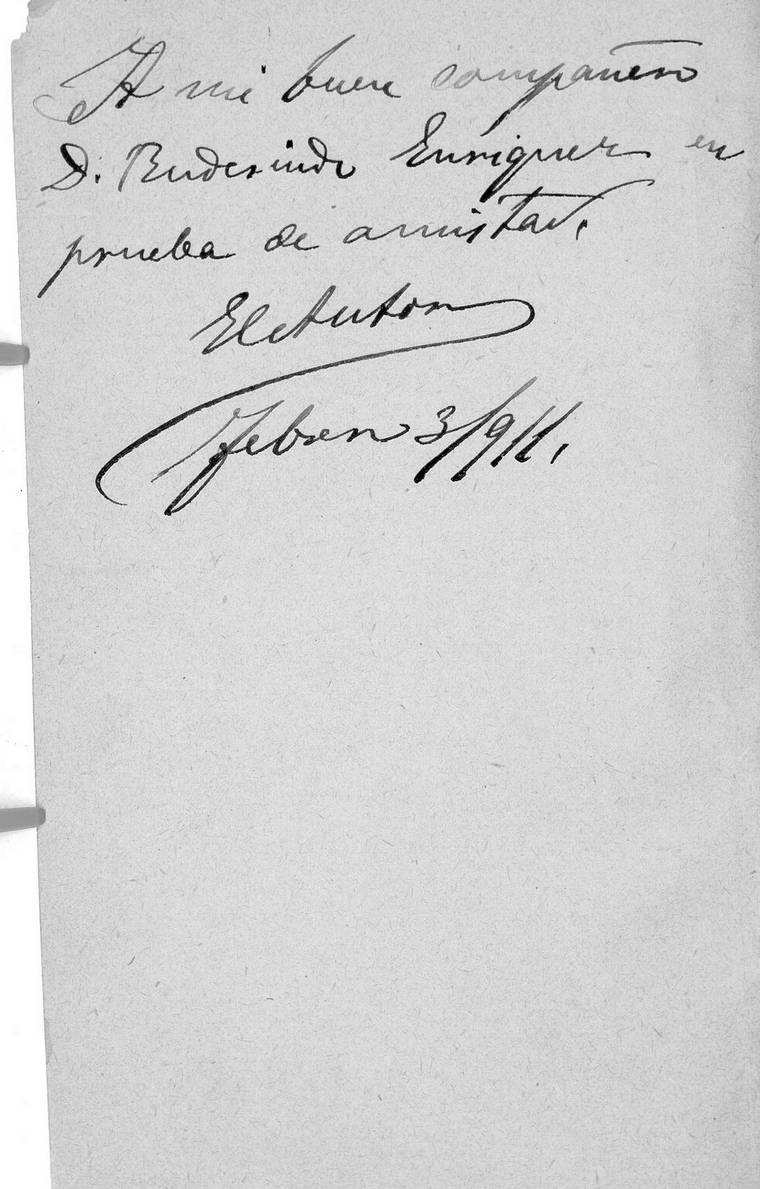 A mi buen compañero
D. Rudesindo Enriquez en
prueba de amistad.
El Autor
Febrero 3/911.